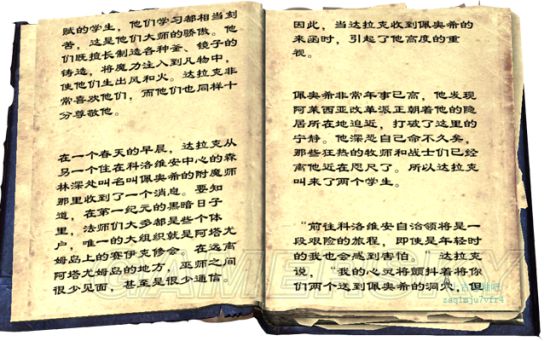 赋的学生，他们学习都相当刻
苦，这是他们大师的骄傲。他
们既擅长制造各种釜、镜子的
铸造，将魔力注入到凡物中，
使他们生出风和火。达拉克非
常喜欢他们，而他们也同样十
分尊敬他。
在一个春天的早晨，达拉克从
另一个住在科洛维安中心的森
林深处叫名叫佩奥希的附魔师
那里收到了一个消息。要知
道，在第一纪元的黑暗日子
里，法师们大多都是些个体
户，唯一的大组织就是阿塔尤
姆岛上的赛伊克修会。在远离
阿塔尤姆岛的地方，巫师之间
很少见面，甚至是很少通信
因此，当达拉克收到佩奥希的
来函时，引起了他高度的重
视。
佩奥希非常年事已高，他发现
阿莱西亚改革派正朝着他的隐
居所在地迫近，打破了这里的
宁静。他深恐自己命不久矣，
那些狂热的牧师和战士们已经
离他近在咫尺了。所以达拉克
叫来了两个学生。
“前往科洛维安自治领将是一
段艰险的旅程，即使是年轻时
的我也会感到害怕 达拉克
说，“我的心灵将颤抖着将你
们两个送到佩奥希的洞穴，但
GAMERSKY
zaqtmju7vfr4